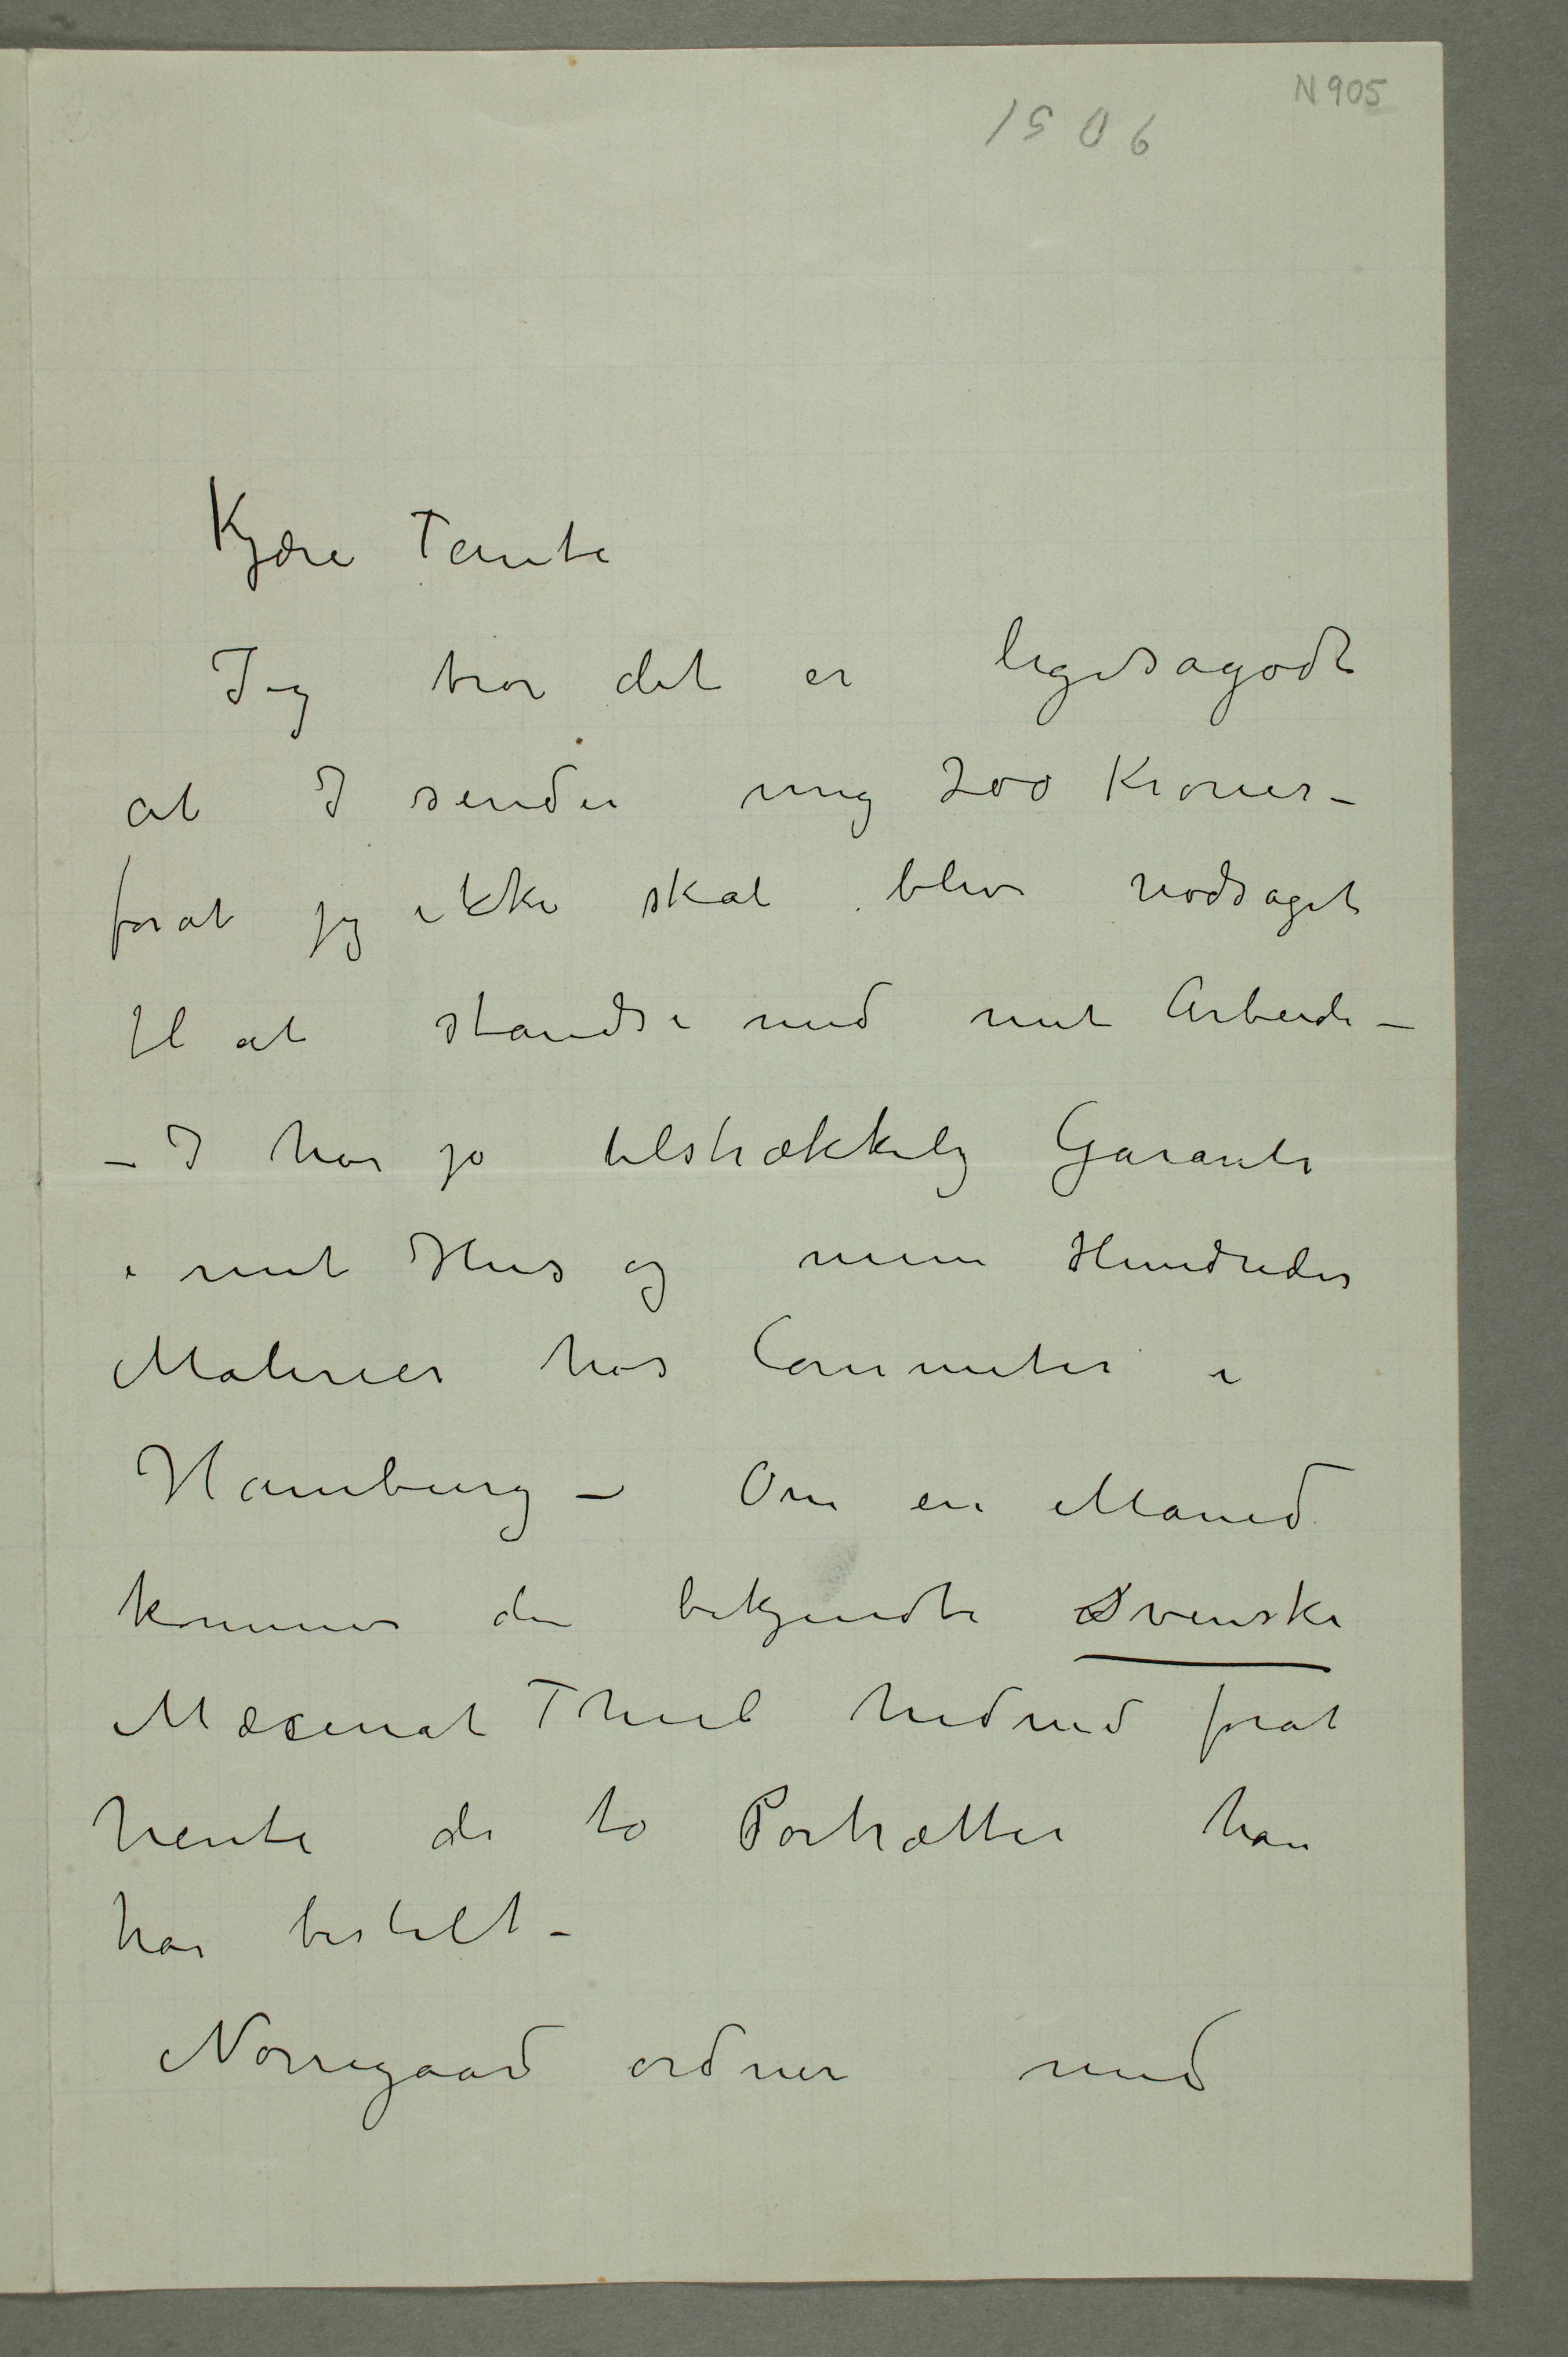 N 905
1906
Kjære Tante
Jeg tror det er ligesågodt
at I sender mig 200 Kroner –
forat jeg ikke skal blive nødsaget
til at standse med mit Arbeide –
– I har jo tilstrækkelig Garanti
i mit Hus og mine Hundreder
Malerier hos Commeter i
Hamburg – Om en Måned
kommer den bekjendte Svenske
Mæcenat Thiel hidned forat
hente de to Portrætter han
har bestilt –
Nørregaard ordner med